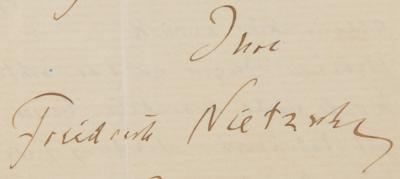 Ihre
Friedrich Nietzsche